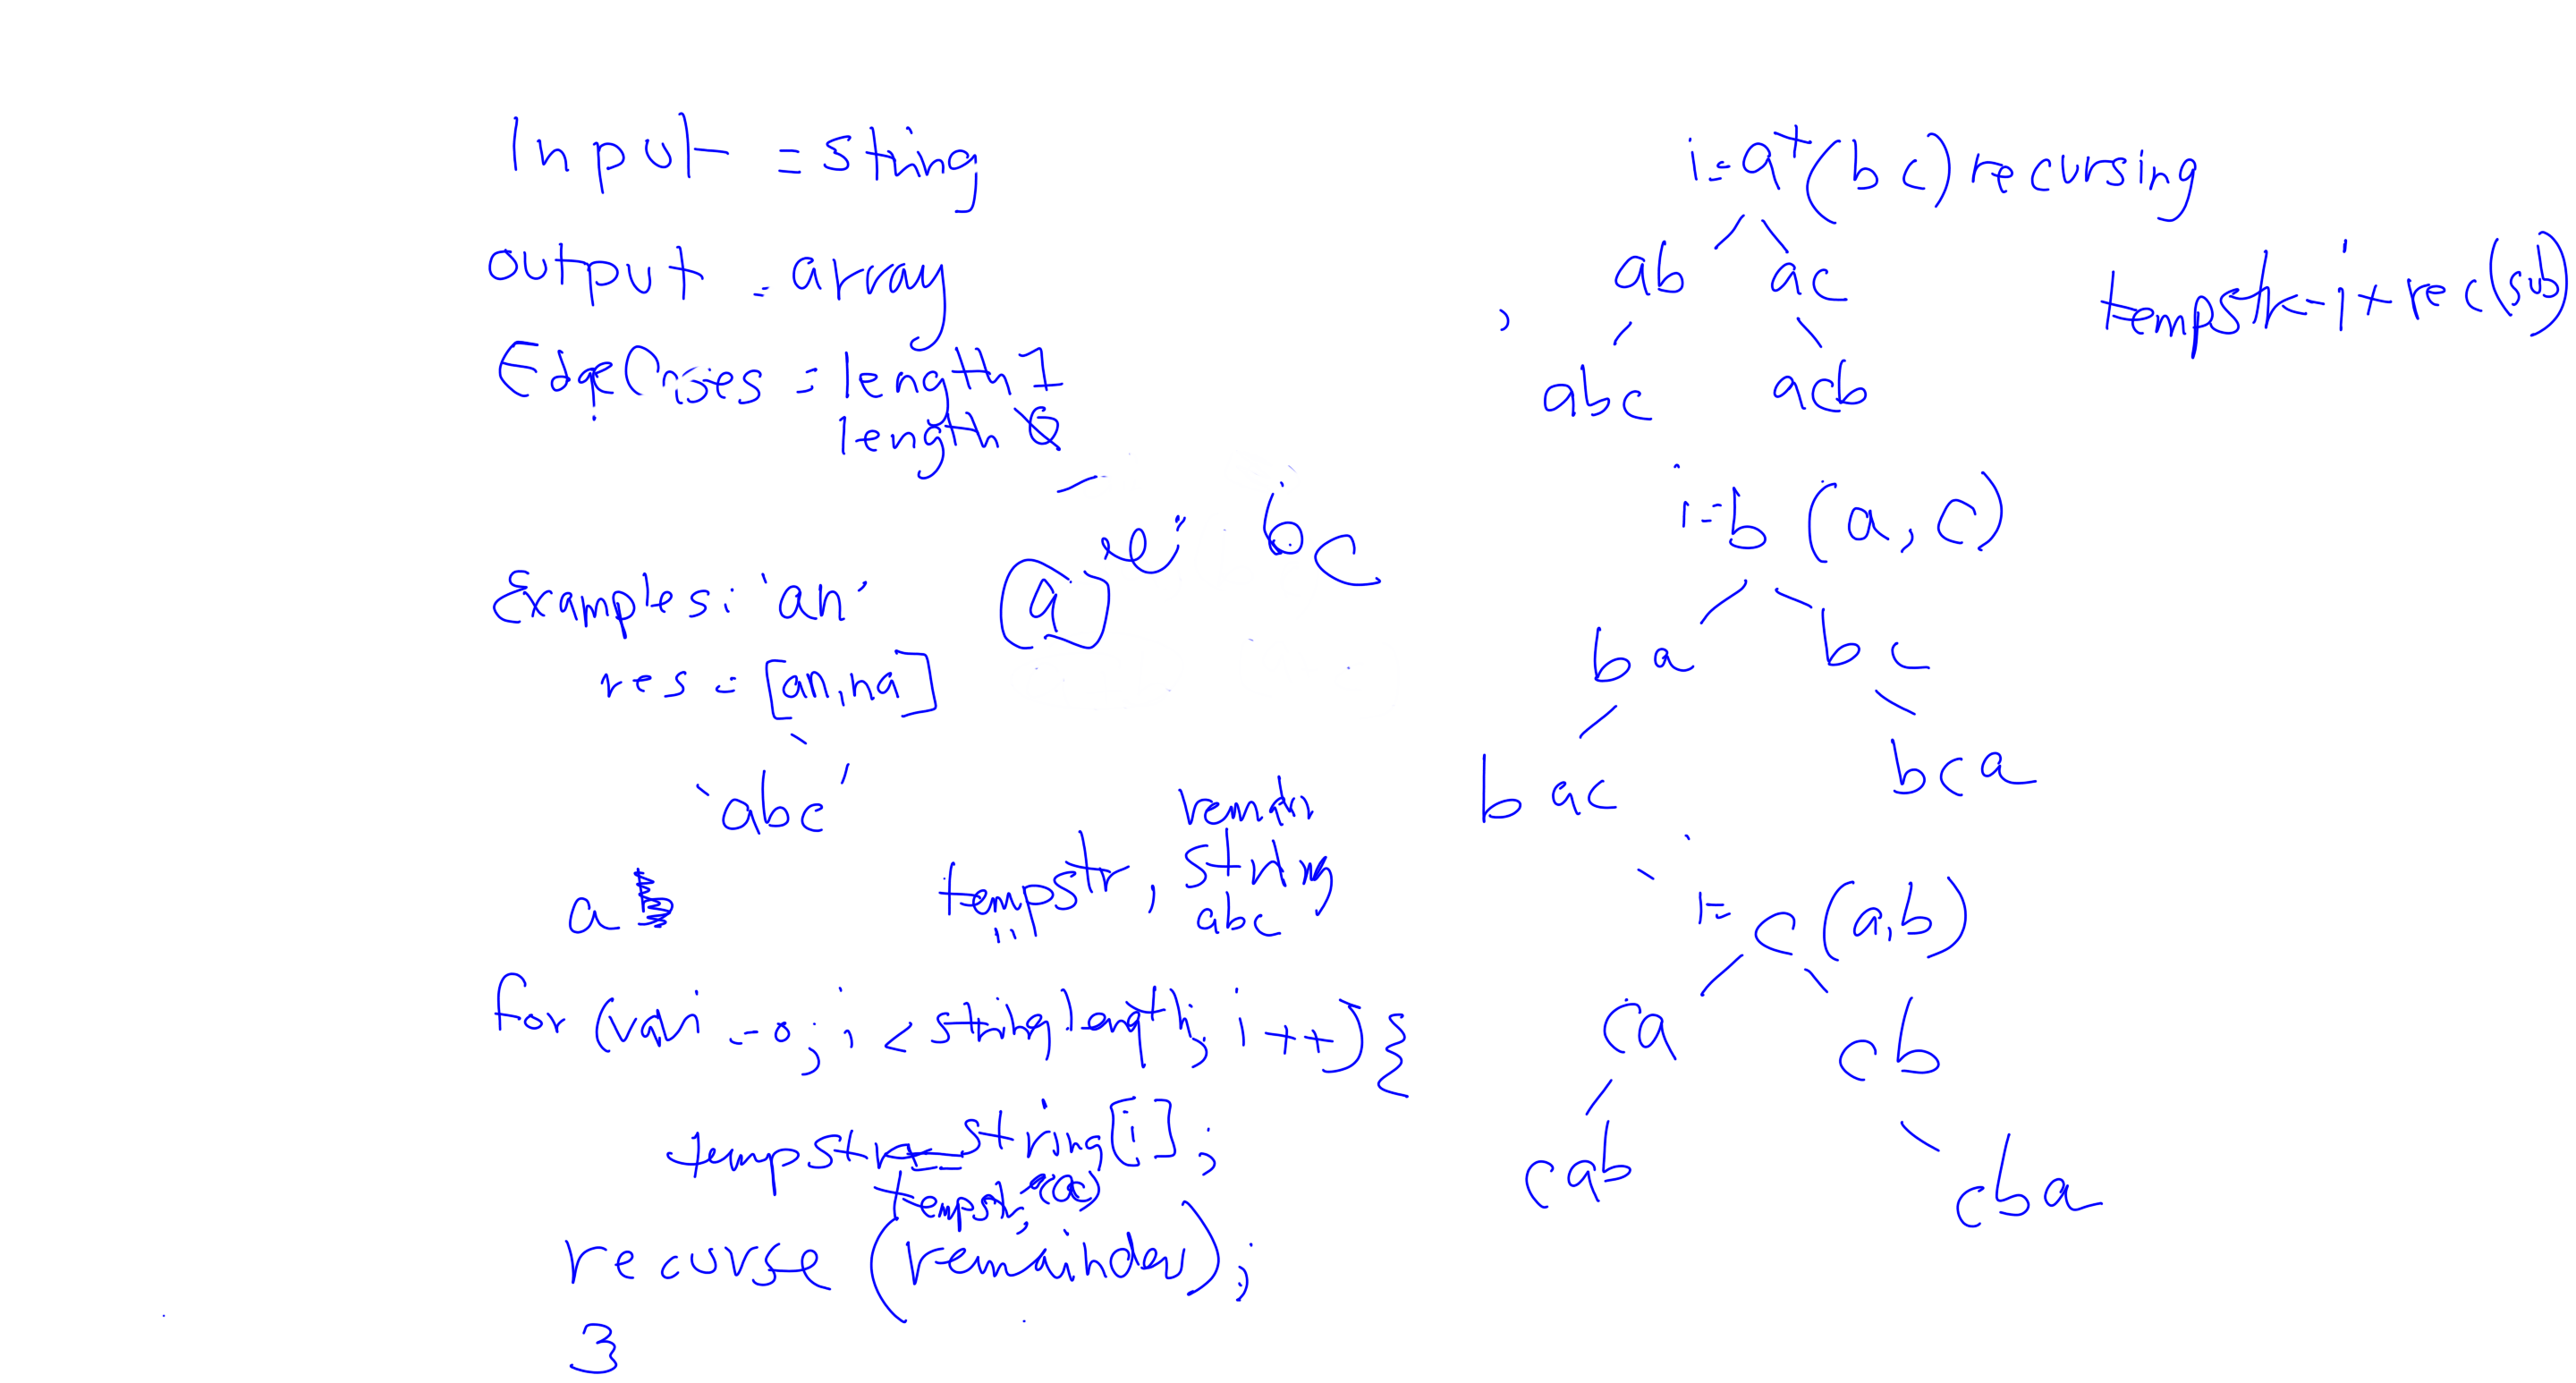 Input = string
output = array
Edge Cases = length 1
length 0
Examples: 'an'
res = [an, na]
'abc'
a
a bc
tempstr, string
" abc
for (var i = 0; i < string length; i++) {
tempstr = string[i];
tempstr,
recurse (remainder);
}
i=a+(bc) recursing
ab ac
abc acb
tempstr = i + rec(sub)
i=b (a,c)
ba bc
bac bca
i= c (a,b)
ca cb
cab cba